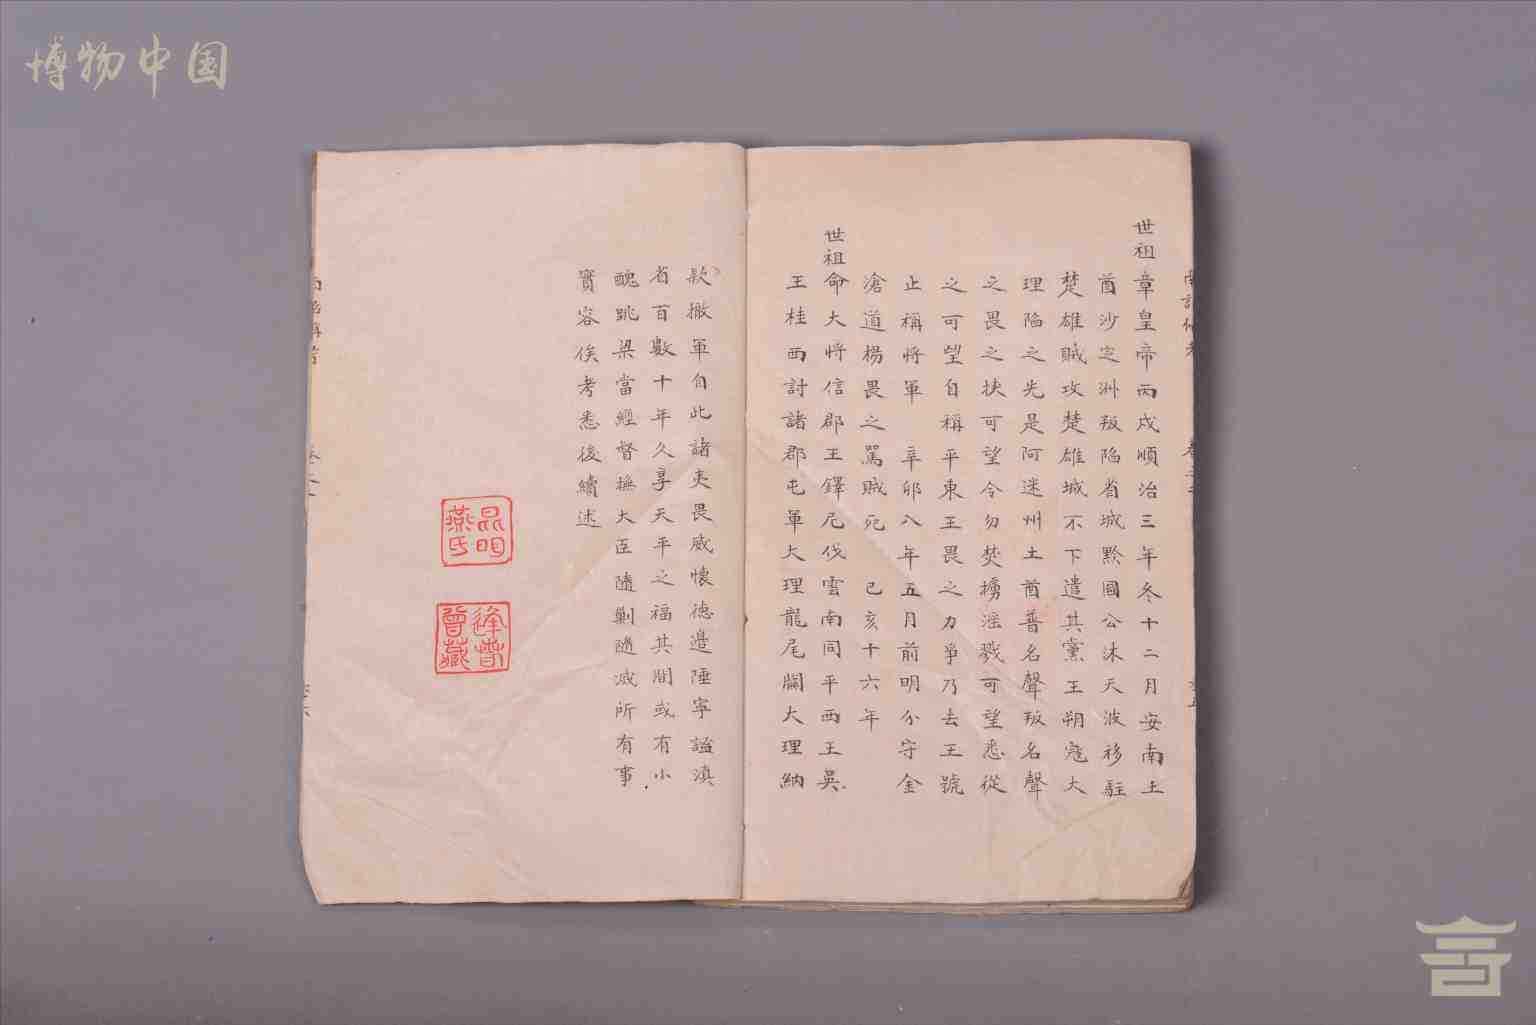 博物中国
世祖章皇帝丙戌順治三年冬十二月安南土
酋沙定洲叛陷省城黔國公沐天波移駐
楚雄賊攻楚雄城不下遣其黨王朔寇大
理陷之先是阿迷州土酋普名聲叛名聲
之畏之挟可望令勿焚擄滛戮可望悉從
之可望自稱平東王畏之力爭乃去王號
止稱將軍 辛卯八年五月前明分守金
滄道楊畏之罵賊死 己亥十六年
世祖命大將信郡王鐸尼伐雲南同平西王吳
王桂西討諸郡屯軍大理龍尾關大理納
款撤軍自此諸夷畏威懷德邉陲寧謐滇
省百數十年久享天平之福其間或有小
醜跳梁當經督撫大臣隨剿隨滅所有事
實容俟考悉後續述
昆明
燕氏
逢春
曾藏